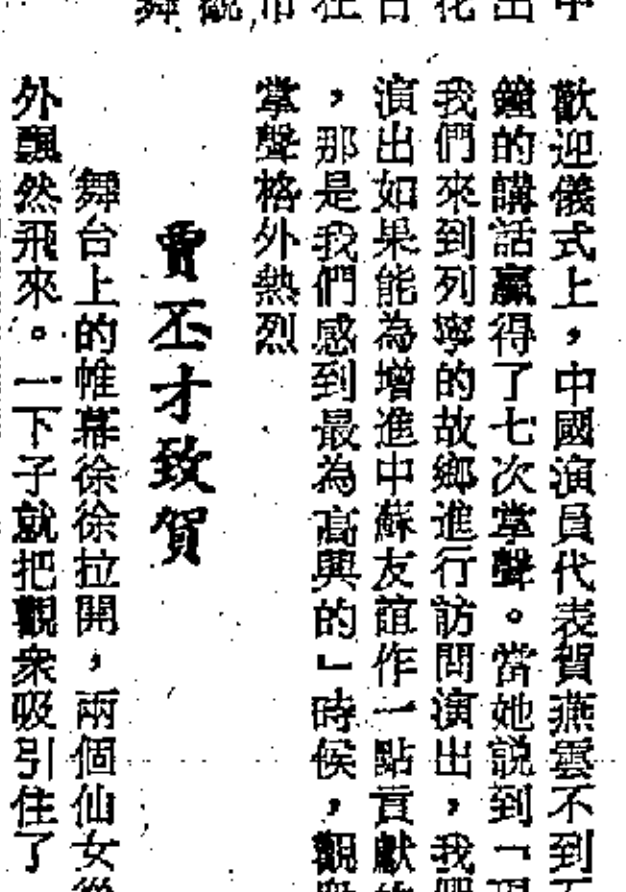 歡迎儀式上，中國演員代表賀燕雲不到
鐘的講話贏得了七次掌聲。當她説到「
我們來到列寧的故鄉進行訪問演出，我
演出如果能為增進中蘇友誼作一點貢獻
，那是我們感到最為高興的」時候，觀
掌聲格外熱烈
賈丕才致賀
舞台上的帷幕徐徐拉開，兩個仙女從
外飄然飛來。一下子就把觀衆吸引住了